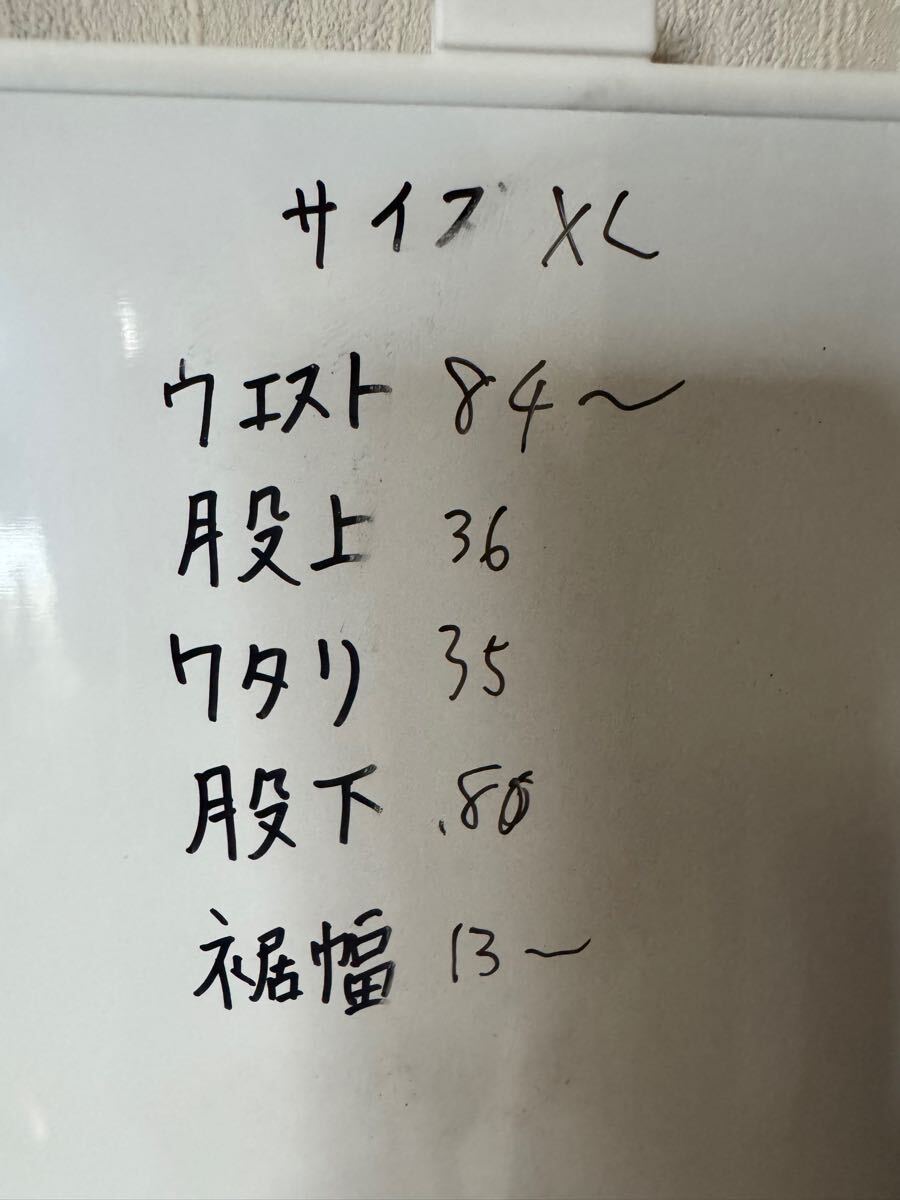 サイズ XL
ウエスト 84〜
股上 36
ワタリ 35
股下 80
裾幅 13〜